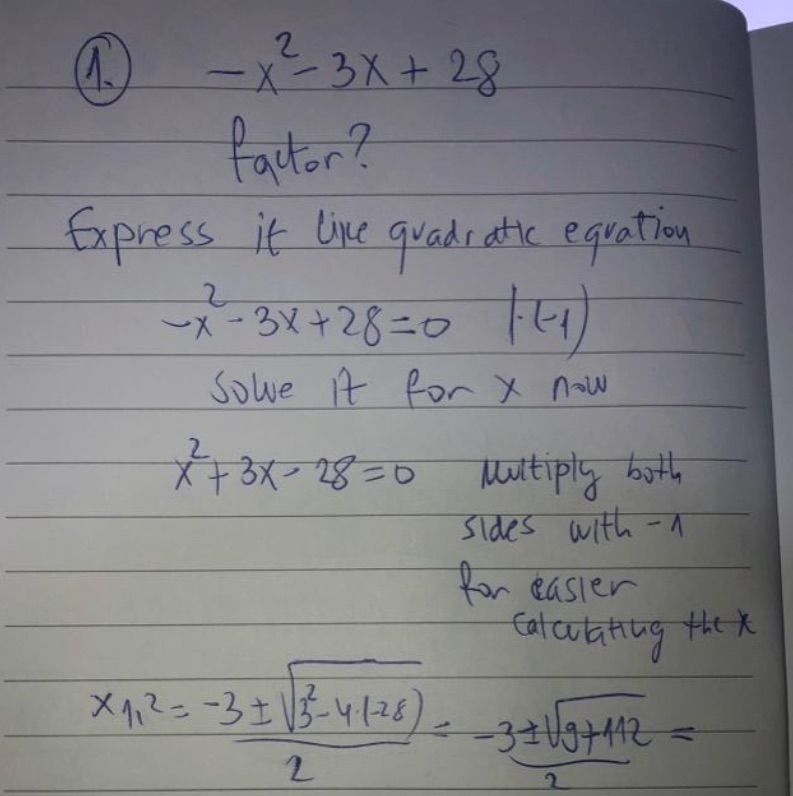 1. -x² - 3x + 28
factor?
Express it like quadratic equation
-x² - 3x + 28 = 0 |·(-1)
Solve it for x now
x² + 3x - 28 = 0 Multiply both
sides with -1
for easier
calculating the x
x1,2 = -3 ± √(3² - 4·(-28)) / 2 = -3 ± √(9 + 112) / 2 =